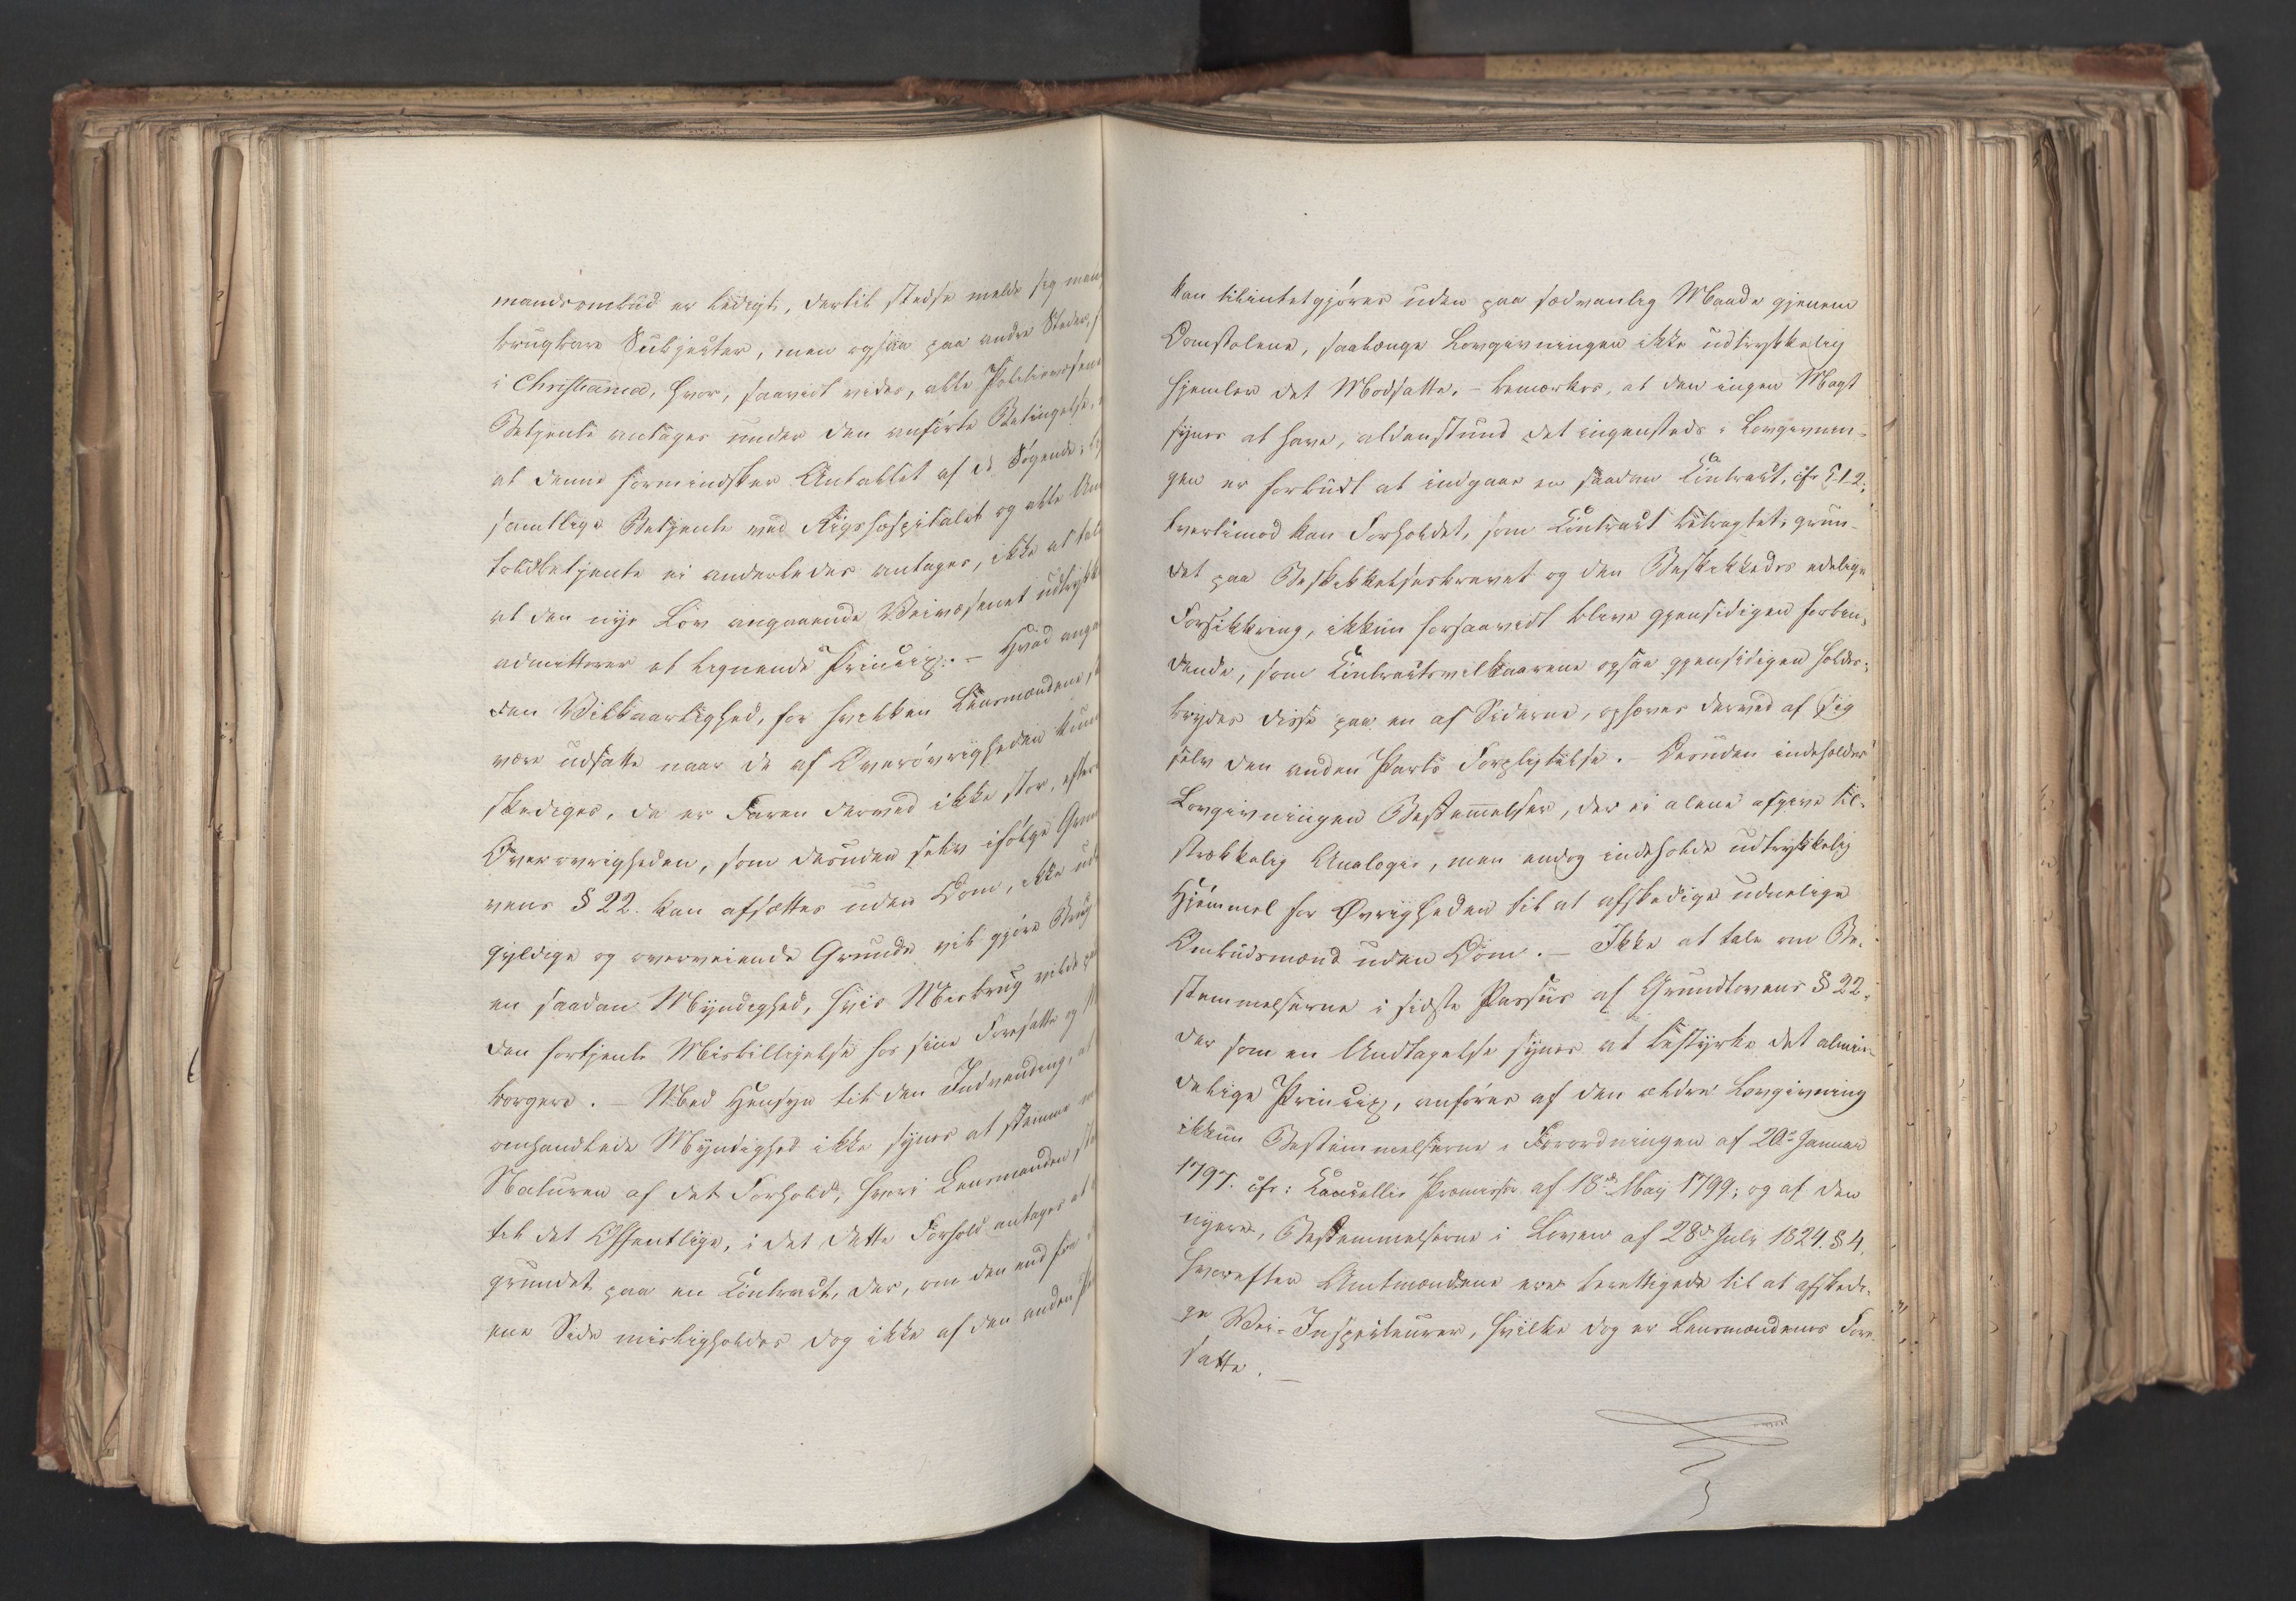 mandsombud er ledigt, dertil stedse melde sig man
brugbare Subjecter, men ogsaa paa andre Steder, s
i Christiania, hvor, saavidt vides, alle Politievæsene
Betjente antages under den anførte Betingelse,
at denne formindsker Antallet af de Søgende;
samtlige Betjente ved Rigshospitalet og alle Un
toldbetjente ei anderledes antages, ikke at tale
at den nye Lov angaaende Veivæsenet udtrykk
admitterer et lignende Princip. – Hvad anga
den Vilkaarlighed, for hvilken Lensmændene
være udsatte naar de af Overøvrigheden kun
skediges, da er Faren derved ikke stor, efter
Overøvrigheden, som desuden selv ifølge Grun
vens § 22. kan afsættes uden Dom, ikke ud
gyldige og overveiende Grunde vil gjøre Brug
en saadan Myndighed, hvis Misbrug vilde
den fortjente Misbilligelse hos sine Foresatte og M
borgere. – Med Hensyn til den Indvending, at
omhandlede Myndighed ikke synes at stemme
Naturen af det Forhold, hvori Lensmanden sta
til det Offentlige, i det dette Forhold antages at
grundet paa en Contract, der, om den end fra
ene Side misligholdes dog ikke af den anden Si
kan tilintetgjøres uden paa sædvanlig Maade gjenem
Domstolene, saalænge Lovgivningen ikke udtrykkelig
hjemler det Modsatte, – bemærkes, at den ingen Magt
synes at have, aldenstund det ingensteds i Lovgivnin-
gen er forbudt at indgaae en saadan Contract, cfr 5-1-2;
tvertimod kan Forholdet, som Contract betragtet, grun-
det paa Beskikkelsesbrevet og den Beskikkedes edelige
Forsikkring, ikkun forsaavidt blive gjensidigen forbin-
dende, som Contractsvilkaarene ogsaa gjensidigen holdes;
brydes disse paa en af Siderne, ophæves derved af sig
selv den anden Parts Forpligtelse. – Desuden indeholder
Lovgivningen Bestemmelser, der ei alene afgive til-
strækkelig Analogie, men endog indeholde udtrykkelig
Hjemmel for Øvrigheden til at afskedige uduelige
Ombudsmænd uden Dom. – Ikke at tale om Be-
stemmelserne i sidste Passus af Grundlovens § 22,
der som en Undtagelse synes at bestyrke det almin-
delige Princip, anføres af den ældre Lovgivning
ikkun Bestemmelserne i Forordningen af 20de Januar
1797. cfr: Cancellie Promissor af 18de May 1799; og af den
nyere, Bestemmelserne i Loven af 28de July 1824. § 4,
hvorefter Amtmændene ere berettigede til at afskedi-
ge Vei-Inspecteurer, hvilke dog er Lensmændenes Fore-
satte. –